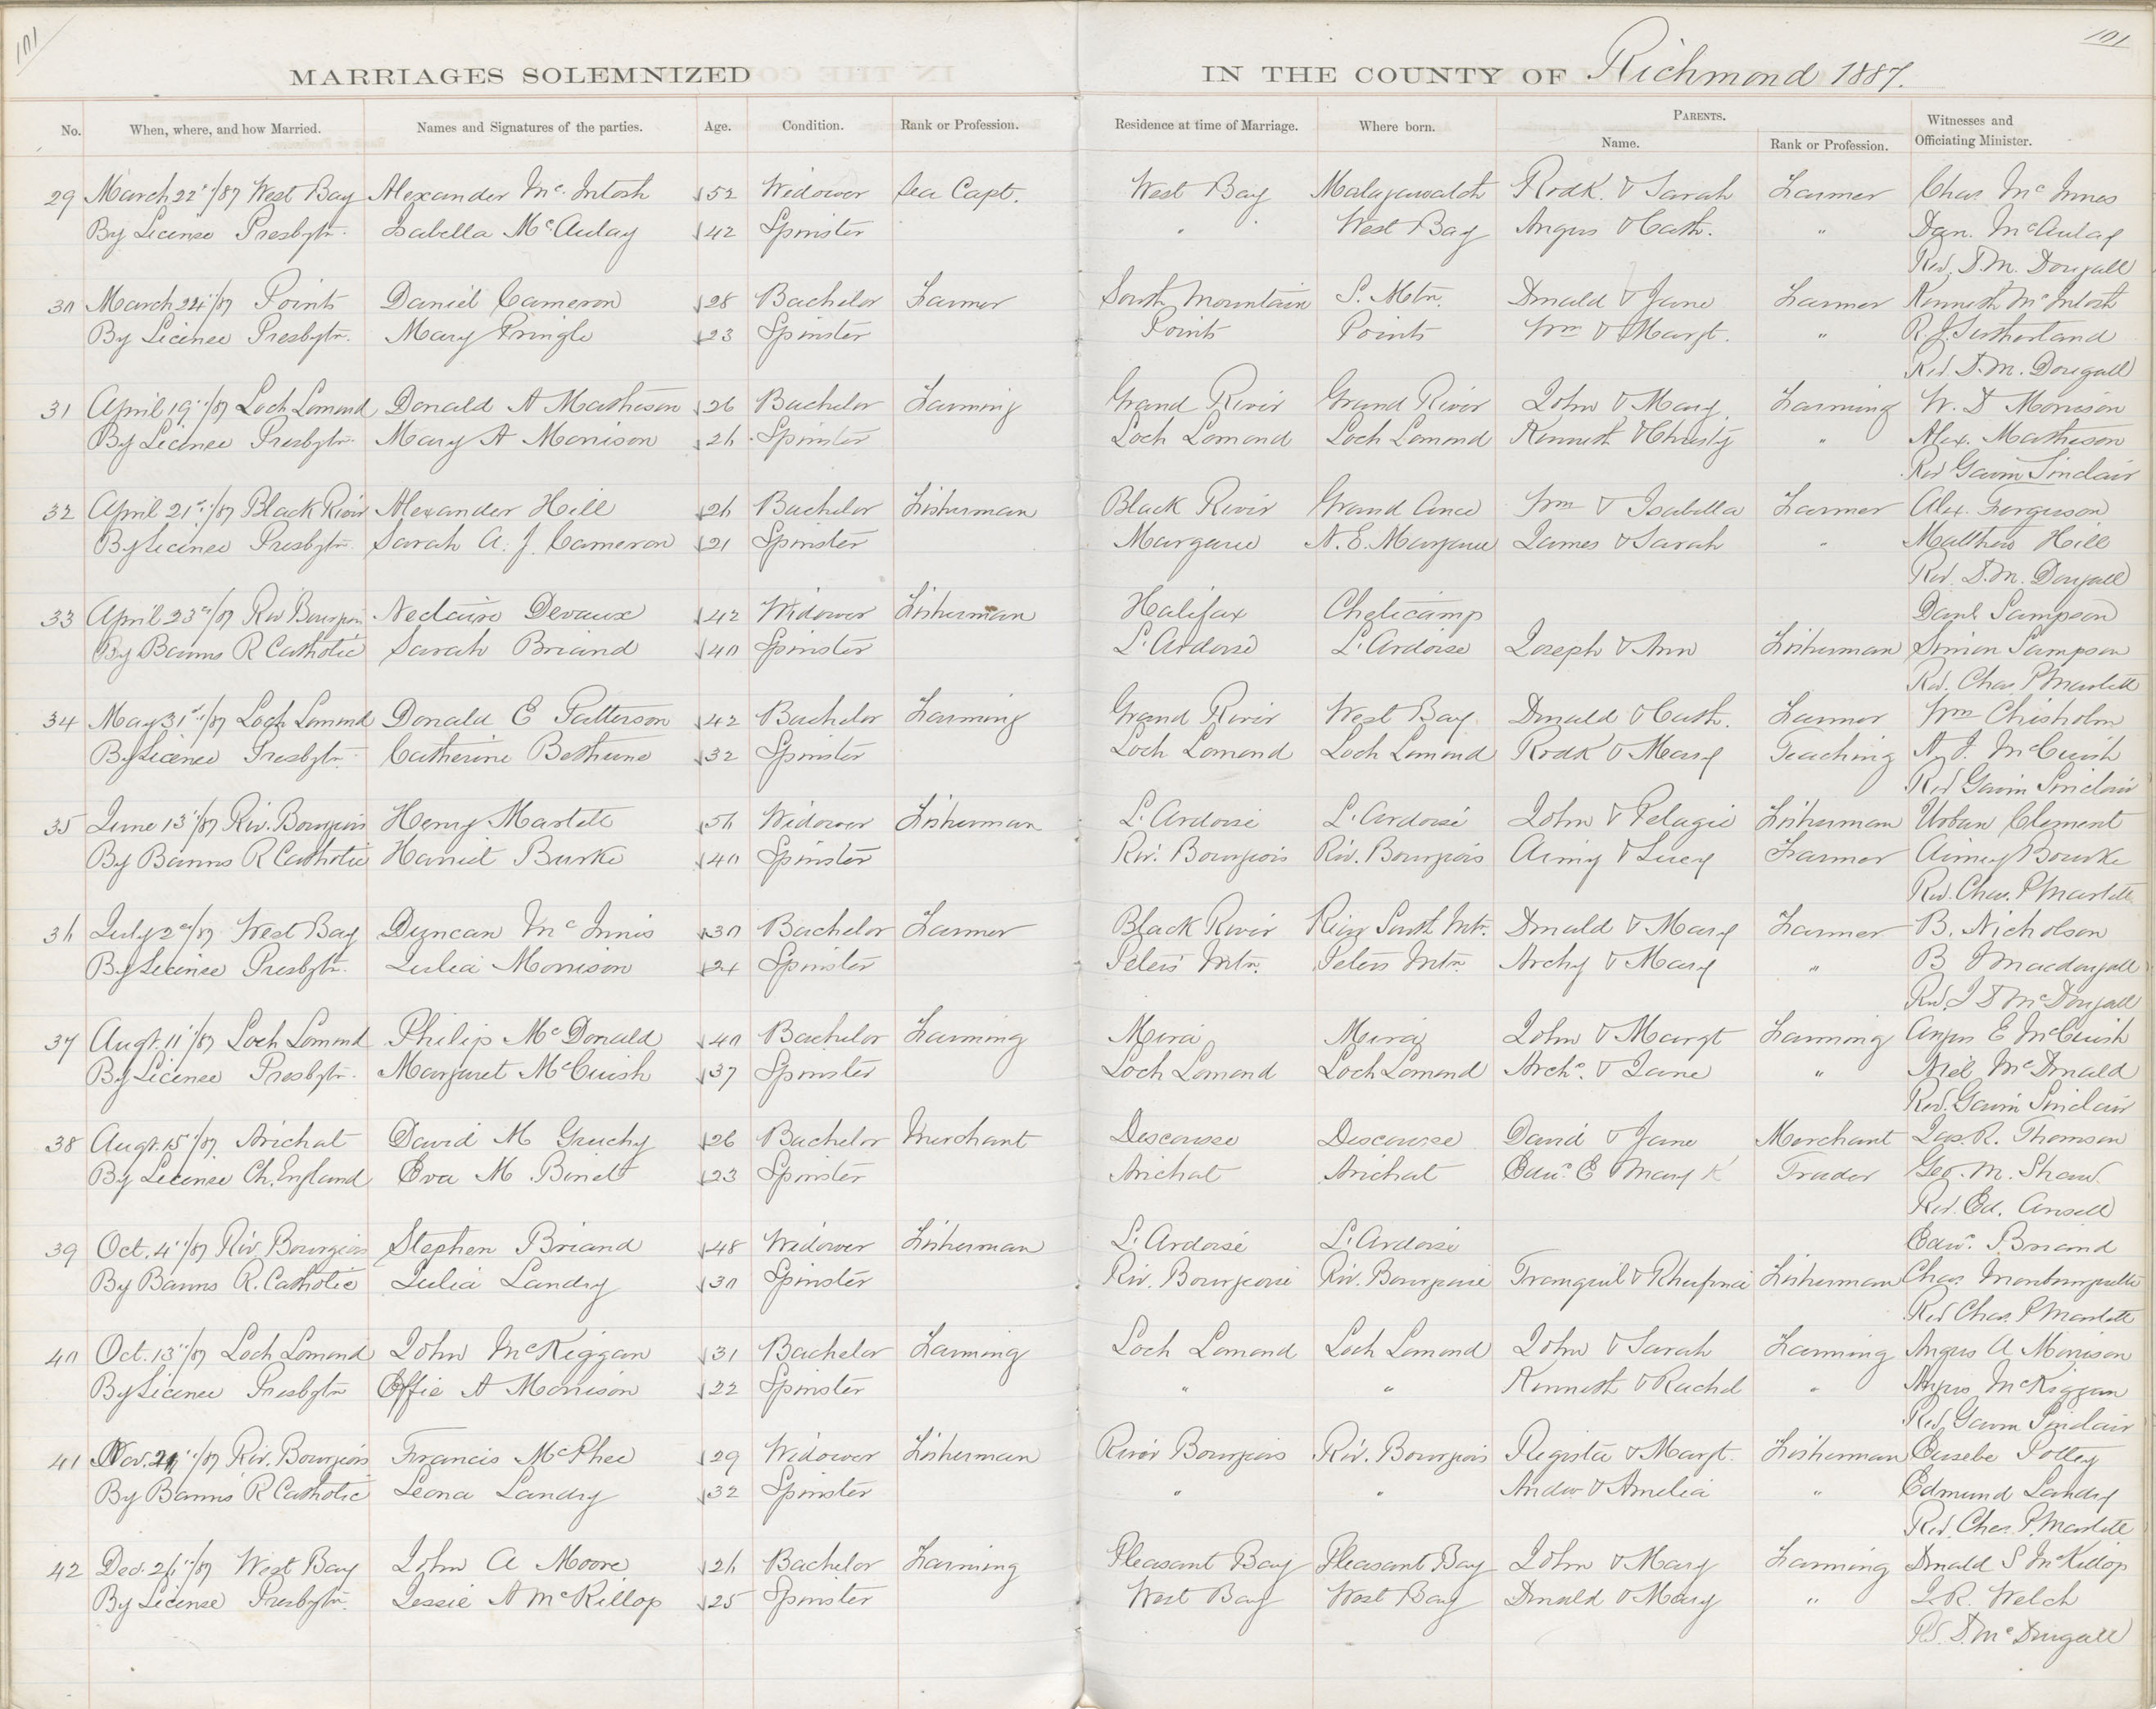 101
101
MARRIAGES SOLEMNIZED IN THE COUNTY OF Richmond 1887.
No. When, where, and how Married. Names and Signatures of the parties. Age. Condition. Rank or Profession. Residence at time of Marriage. Where born. PARENTS. Name. Rank or Profession. Witnesses and Officiating Minister.
29 March 22"/87 West Bay Alexander McIntosh 52 Widower Sea Capt. West Bay Malagawatch Rodk. & Sarah Farmer Chas. McInnes
By License Presbytn. Isabella McAulay 42 Spinster " West Bay Angus & Cath. " Dan. McAulay
Rev. D.M. Dougall
30 March 24"/87 Points Daniel Cameron 28 Bachelor Farmer South Mountain S. Mtn. Donald & Jane Farmer Kenneth McIntosh
By License Presbytn. Mary Pringle 23 Spinster Points Points Wm & Margt. " R.J. Sutherland
Rev. D.M. Dougall
31 April 19"/87 Loch Lomond Donald A Matheson 26 Bachelor Farming Grand River Grand River John & Mary Farming W. D Morrison
By License Presbytn. Mary A Morrison 26 Spinster Loch Lomond Loch Lomond Kenneth & Christy " Alex. Matheson
Rev Gavin Sinclair
32 April 21st/87 Black River Alexander Hill 26 Bachelor Fisherman Black River Grand Ance Wm & Isabella Farmer Alex. Ferguson
By License Presbytn. Sarah A. J. Cameron 21 Spinster Margaree N.E. Margaree James & Sarah " Matthew Hill
Rev. D.M. Dougall
33 April 23rd/87 Riv Bourgeois Neclaire Devaux 42 Widower Fisherman Halifax Cheticamp Danl Sampson
By Banns R Catholic Sarah Briand 40 Spinster L'Ardoise L'Ardoise Joseph & Ann Fisherman Simon Sampson
Rev. Chas. P Martell
34 May 31st/87 Loch Lomond Donald E Patterson 42 Bachelor Farming Grand River West Bay Donald & Cath. Farmer Wm Chisholm
By License Presbytn. Catherine Bethune 32 Spinster Loch Lomond Loch Lomond Rodk & Mary Teaching A. J. McCuish
Rev Gavin Sinclair
35 June 13"/87 Riv. Bourgeois Henry Martell 56 Widower Fisherman L'Ardoise L'Ardoise John & Pelagie Fisherman Urban Clement
By Banns R Catholic Harriet Burke 40 Spinster Riv. Bourgeois Riv. Bourgeois Aimy & Lucy Farmer Aimey Bourke
Rev. Chas. P Martell
36 July 2nd/87 West Bay Duncan McInnis 30 Bachelor Farmer Black River River South Mtn. Donald & Mary Farmer B. Nicholson
By License Presbytn. Julia Morrison 24 Spinster Peters Mtn. Peters Mtn. Archy & Mary " B J Macdougall
Rev. J D McDougall
37 Augt. 11"/87 Loch Lomond Philip McDonald 40 Bachelor Farming Mira Mira John & Margt Farming Angus E McCuish
By License Presbytn. Margaret McCuish 37 Spinster Loch Lomond Loch Lomond Archd. & Jane " Neil McDonald
Rev. Gavin Sinclair
38 Augt. 15"/87 Arichat David M Gruchy 26 Bachelor Merchant Descousse Descousse David & Jane Merchant Jas. R. Thomson
By License Ch. England Eva M Binet 23 Spinster Arichat Arichat Edw. E & Mary K Trader Geo. M. Shaw
Rev. Ed. Ansell
39 Oct. 4"/87 Riv. Bourgeois Stephen Briand 48 Widower Fisherman L'Ardoise L'Ardoise Edw. Briand
By Banns R. Catholic Julia Landry 30 Spinster Riv. Bourgeoise Riv. Bourgeoise Tranquil & Fisherman Chas.
Rev Chas. P Martell
40 Oct. 13"/87 Loch Lomond John McKiggan 31 Bachelor Farming Loch Lomond Loch Lomond John & Sarah Farming Angus A Morrison
By License Presbytn Effie A Morrison 22 Spinster " " Kenneth & Rachel " Angus McKiggan
Rev. Gavin Sinclair
41 Nov. 21"/87 Riv. Bourgeois Francis McPhee 29 Widower Fisherman River Bourgeois Riv. Bourgeois Regista & Margt. Fisherman Eusebe Polley
By Banns R Catholic Leona Landry 32 Spinster " " Andw & Amelia " Edmund Landry
Rev. Chas. P. Martell
42 Dec. 26"/87 West Bay John A Moore 26 Bachelor Farming Pleasant Bay Pleasant Bay John & Mary Farming Donald S McKillop
By License Presbytn. Jessie A McKillop 25 Spinster West Bay West Bay Donald & Mary " J. R. Welch
Rev. D. McDougall